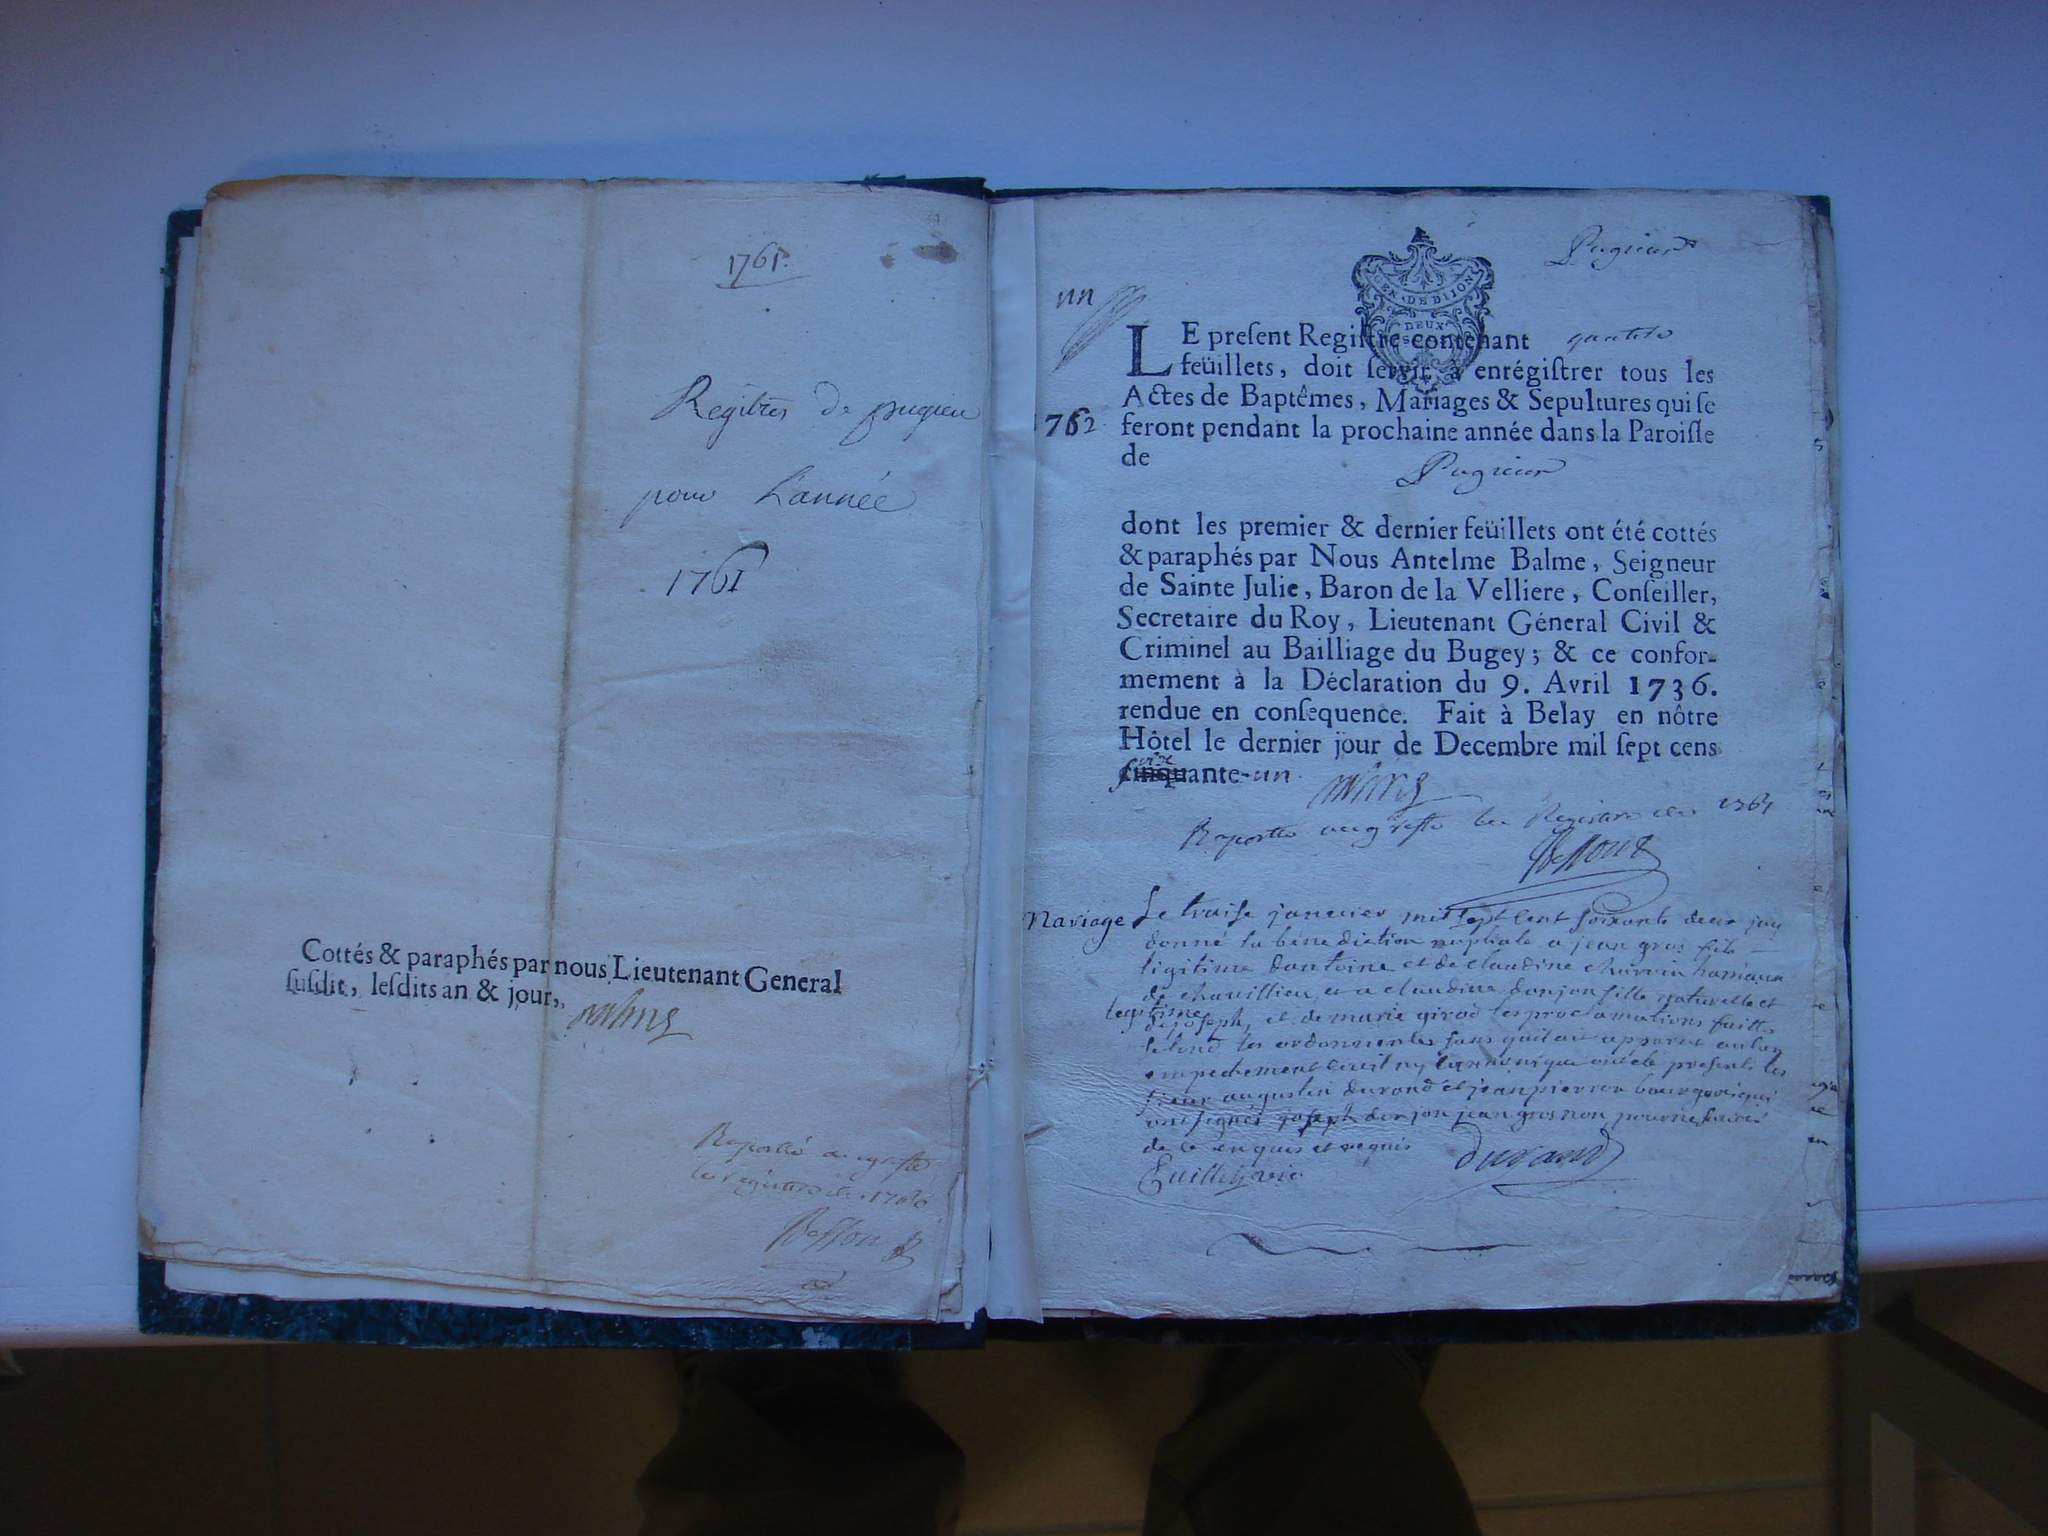 1761.
Registres de pugieu
pour L'année
1761
Cottés & paraphés par nous Lieutenant General
susdit, lesdits an & jour,.
Raporté au greffe
les régistres de 1760
Besson
Pugieu
un
GEN. DE DIJON
DEUX
LE present Registre contenant
feüillets, doit servir à enrégistrer tous les
Actes de Baptêmes, Mariages & Sepultures qui se
1762 feront pendant la prochaine année dans la Paroisse
de Pugieu
dont les premier & dernier feüillets ont été cottés
& paraphés par Nous Antelme Balme, Seigneur
de Sainte Julie, Baron de la Velliere, Conseiller,
Secretaire du Roy, Lieutenant Géneral Civil &
Criminel au Bailliage du Bugey; & ce confor-
mement à la Déclaration du 9. Avril 1736.
rendue en consequence. Fait à Belay en nôtre
Hôtel le dernier jour de Decembre mil sept cens
cinquante-un
Raporté au greffe les Registres de 1761
Besson
Mariage Le traise janvier mil sept cent soixante deux jay
donné la bénédiction nuptiale a jean gros fils
légitime dantoine et de claudine charvin hameau
de chavillieu et a claudine donjon fille naturelle et
legitime de joseph, et de marie girod les proclamations faittes
selond les ordonnances sans quil ait apparut aucun
empechement civil ny cannonique ont été presents les
sieur augustin durand et jean pierre bourgeois qui
ont signés joseph donjon jean gros non pour ne savoir
de ce enquis et requis durand